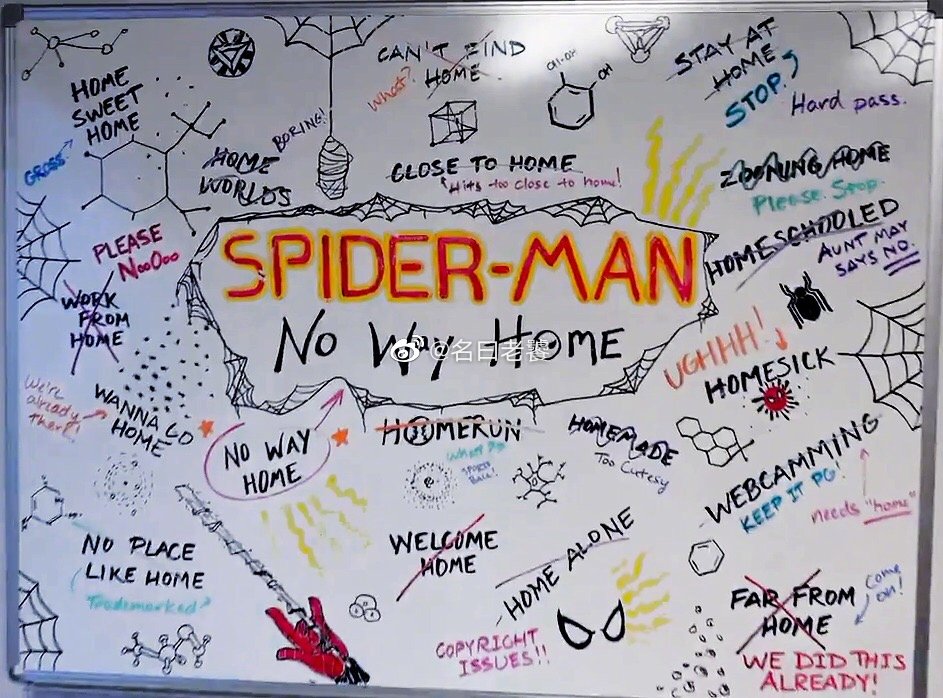 CAN'T FIND
HOME
What?
STAY AT
HOME
STOP.
Hard pass.
HOME
SWEET
HOME
GROSS
CH-OH
OH
BORING!
HOME
WORLDS
CLOSE TO HOME
Hits too close to home!
ZOOMING HOME
Please Stop.
HOMESCHOOLED
AUNT MAY
SAYS NO.
PLEASE
NooOoo
WORK
FROM
HOME
SPIDER-MAN
No Way Home
@名曰老饕
UGHHH!
HOMESICK
We're
already
there!
WANNA GO
HOME
NO WAY
HOME
HOMERUN
What Do
SPORTS
BALL!
HOMEMADE
Too Cutesy
WEBCAMMING
KEEP IT PG!
needs "home"
NO PLACE
LIKE HOME
Trademarked?
WELCOME
HOME
HOME ALONE
COPYRIGHT
ISSUES!!
FAR FROM
HOME
Come
on!
WE DID THIS
ALREADY!